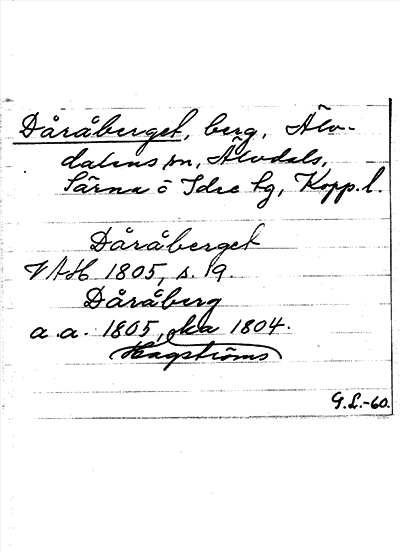 Dåråberget, berg, Älv-
dalens sn, Älvdals,
Särna o Idre tg, Kopp. l.
Dåråberget
VAH 1805, s. 19.
Dåråberg
a. a. 1805, ka 1804.
Hagströms
G.L.-60.